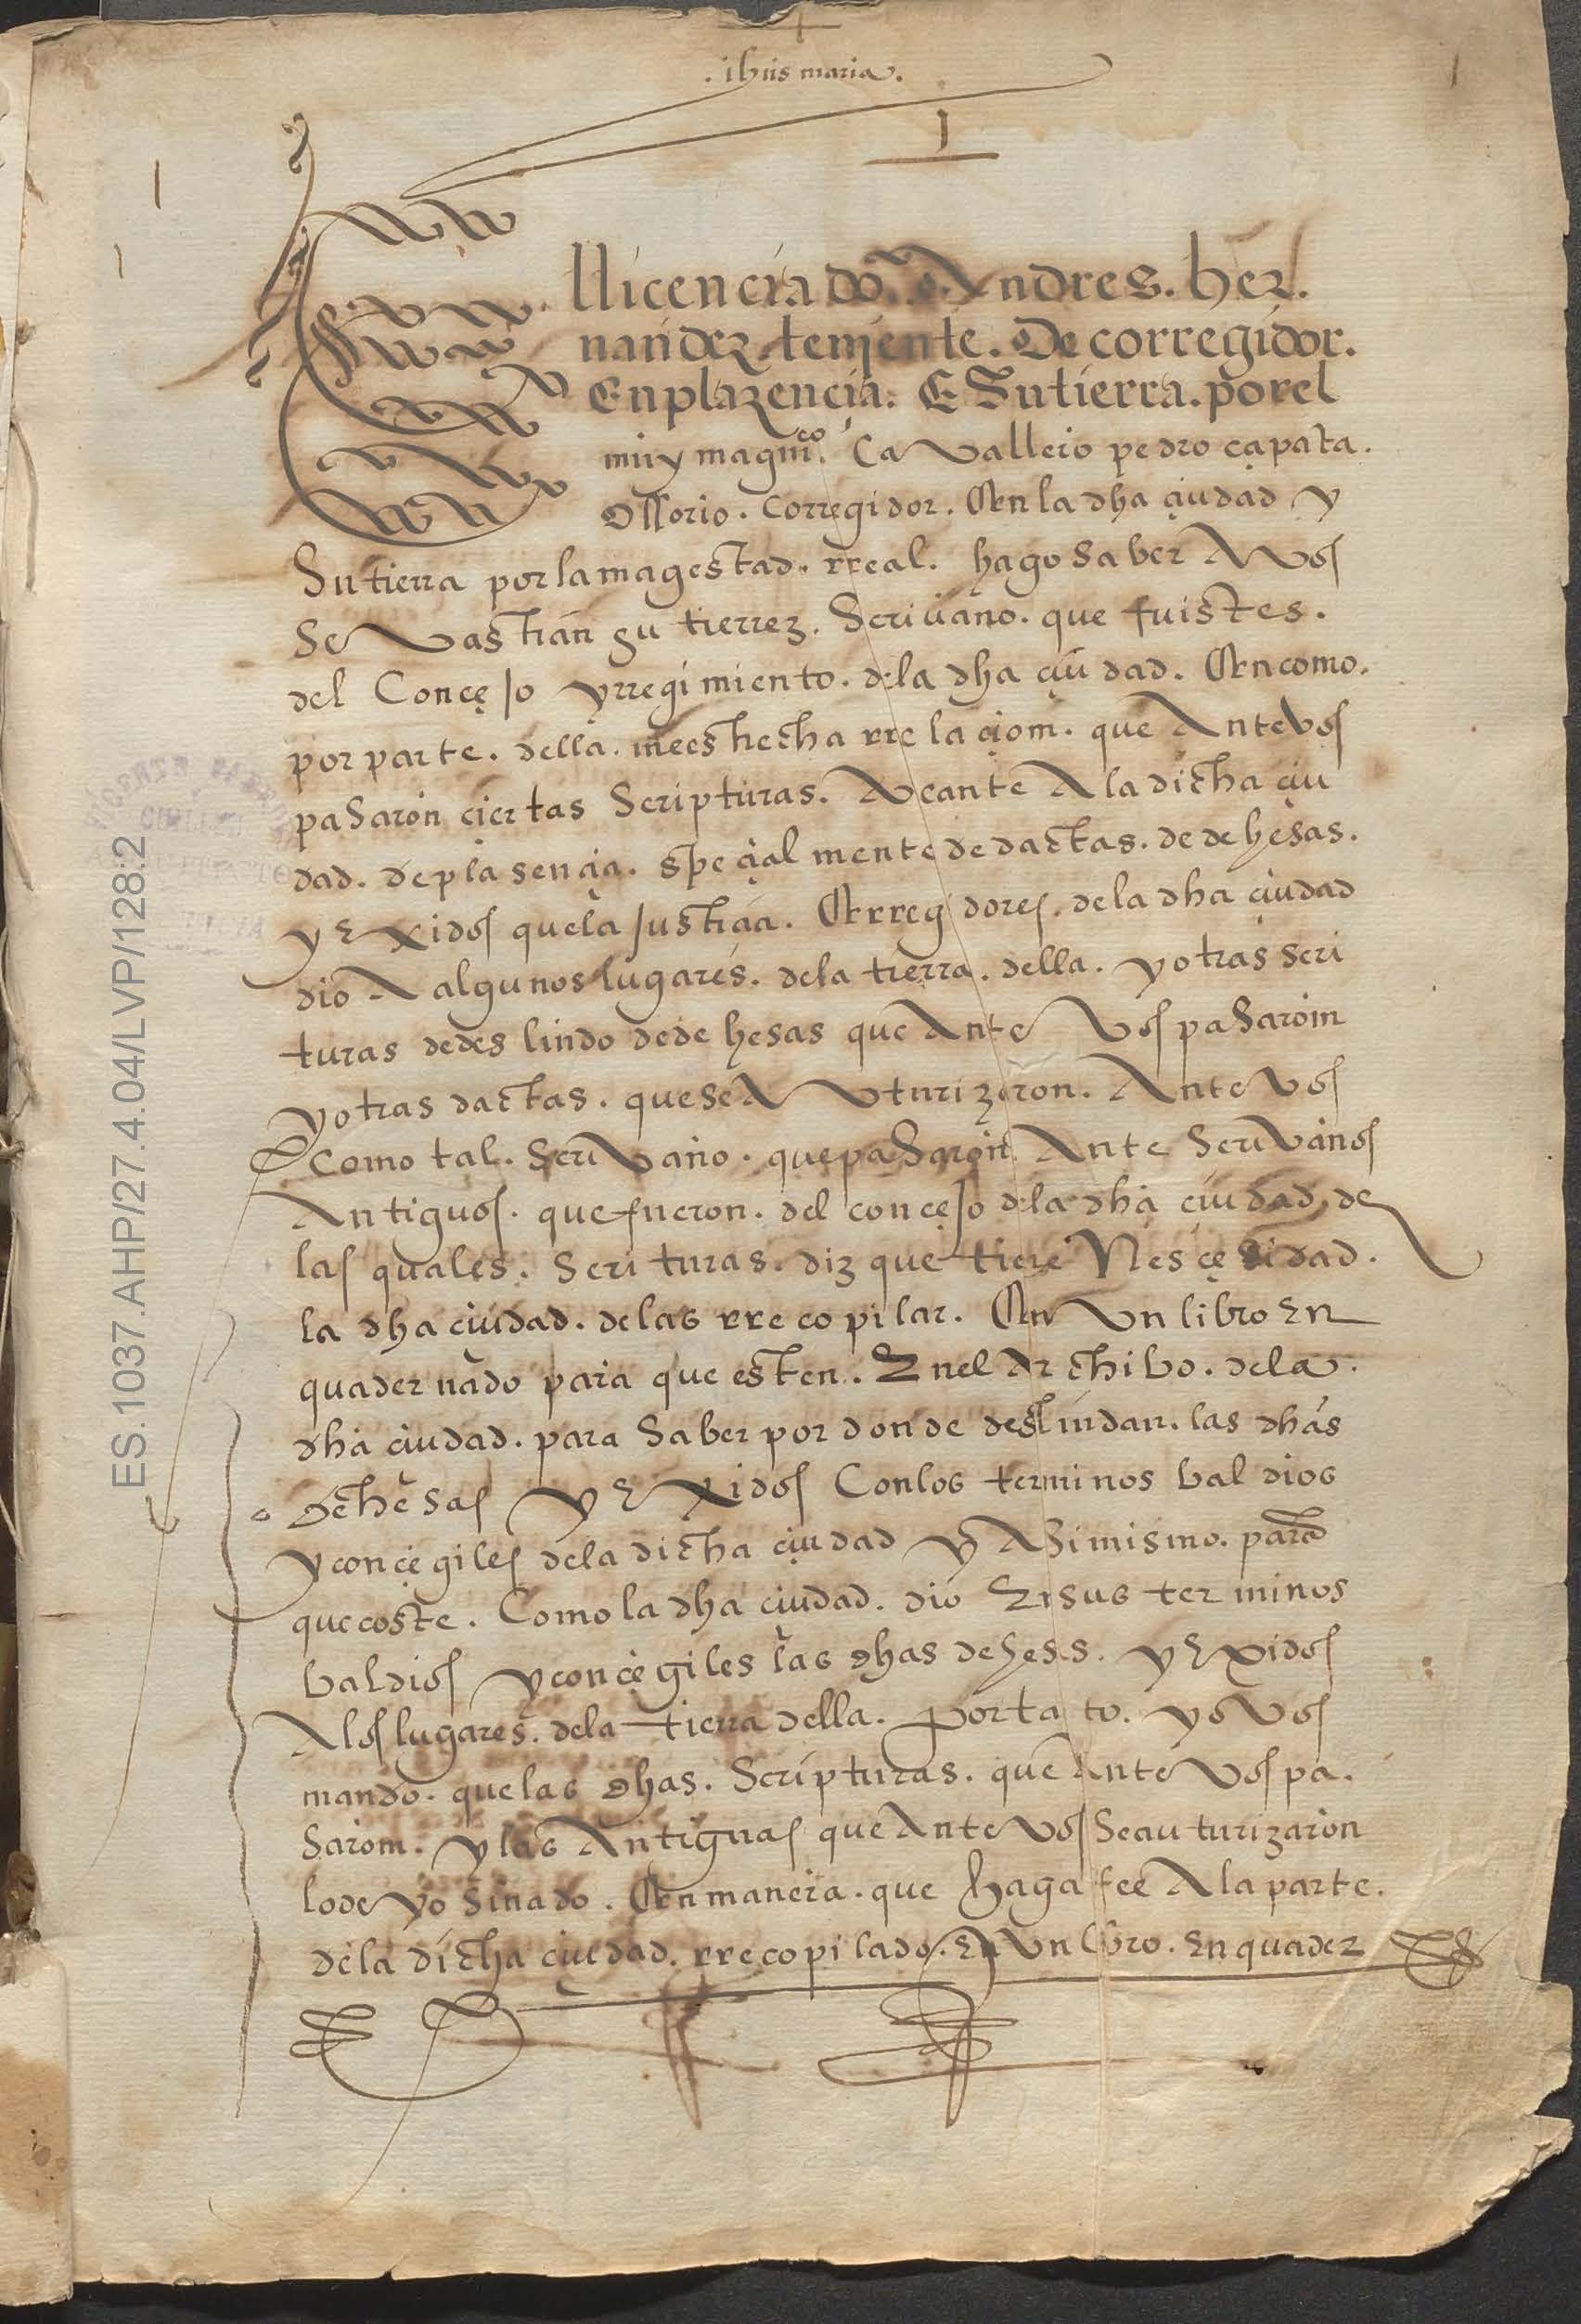 . ihus maria .
1
I
1
1
El licenciado. Andres. her.
nandez. teniente. De corregidor.
En plazencia. E Su tierra. por el
muy magco. Cavallero pedro çapata.
Ossorio. corregidor. En la dha çiudad y
Su tierra por la magestad. rreal. hago saber A vos
Sevastian gutierrez. Scrivano. que fuistes.
del Conçejo y rregimiento. de la dha çiudad. En como.
por parte. della. me es hecha rrelaçiom. que Ante vos
pasaron ciertas Scripturas. Acante A la dicha çiu
dad. de plasençia. speçial mente de dactas. de dehesas.
y Exidos que la justiçia. E rregidores. de la dha çiudad
dio A algunos lugares. de la tierra. della. y otras scri
turas de deslindo de dehesas que Ante Vos pasaroin
y otras dactas. que se Auturizaron. Ante Vos
Como tal. Scrivano. que pasaron Ante Scrivanos
Antiguos. que fueron. del conçejo de la dha çiudad, de
las quales. Scrituras. diz que tiene Nesçesidad.
la dha çiudad. de las rrecopilar. En Un libro En
quadernado para que esten. En el Archibo. de la.
dha çiudad. para Saber por donde deslindan. las dhas
dehesas y Exidos Con los terminos baldios
y conçegiles de la dicha çiudad y Asi mismo. para
que coste. Como la dha çiudad. dio En sus terminos
baldios y conçegiles las dhas dehess. y Exidos
A los lugares. de la tierra della. Por tato. yo Vos
mando. que las dhas. Scripturas. que Ante Vos pa.
sarom. y las Antiguas que Ante Vos Se auturizaron
lo de yo sinado. En manera. que haga fee A la parte.
de la dicha çiudad. rrecopilado. En Un libro. En quader
ES.1037.AHP/27.4.04/LVP/128:2